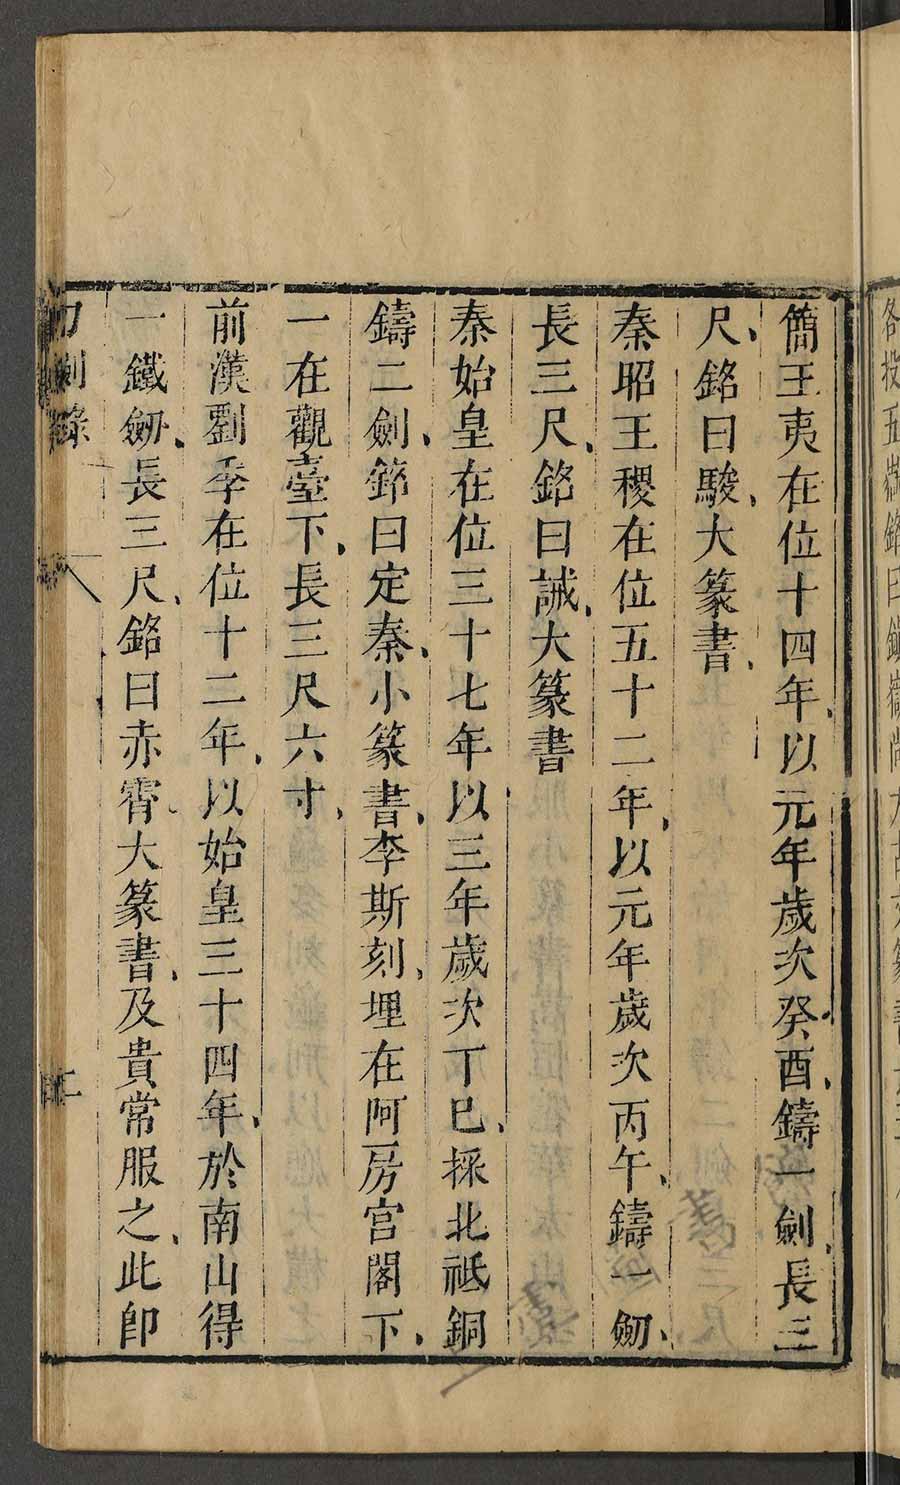 簡王夷在位十四年以元年歲次癸酉鑄一劍長三
尺銘曰駿大篆書
秦昭王稷在位五十二年以元年歲次丙午鑄一劒
長三尺銘曰誡大篆書
秦始皇在位三十七年以三年歲次丁巳採北祗銅
鑄二劍銘曰定秦小篆書李斯刻埋在阿房宮閣下
一在觀臺下長三尺六寸
前漢劉季在位十二年以始皇三十四年於南山得
一鐵劒長三尺銘曰赤霄大篆書及貴常服之此即
刀劍錄
二